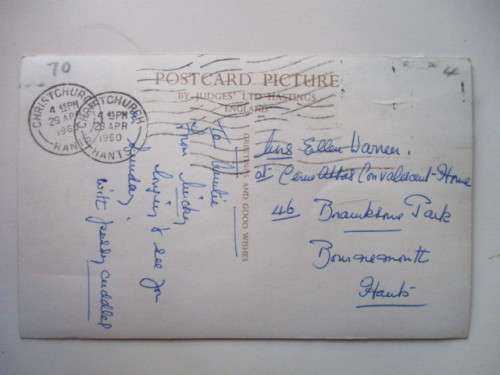 70
CHRISTCHURCH
4 45PM
29 APR
1960
HANTS
CHRISTCHURCH
4 45PM
29 APR
1960
HANTS
POSTCARD PICTURE
BY JUDGES' LTD HASTINGS
ENGLAND
GREETINGS AND GOOD WISHES
To Auntie
From Micky
longing to see you
Sunday.
with fussy cuddles
Mrs Ellen Warren.
at Convalescent-Home
46 Branksome Park
Bournemouth
Hants